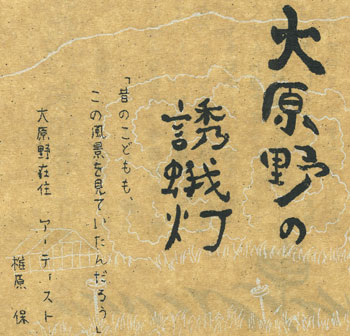 大原野の
誘蛾灯
「昔のこどもも、
この風景を見ていたんだろう」
大原野在住 アーティスト
椎原 保